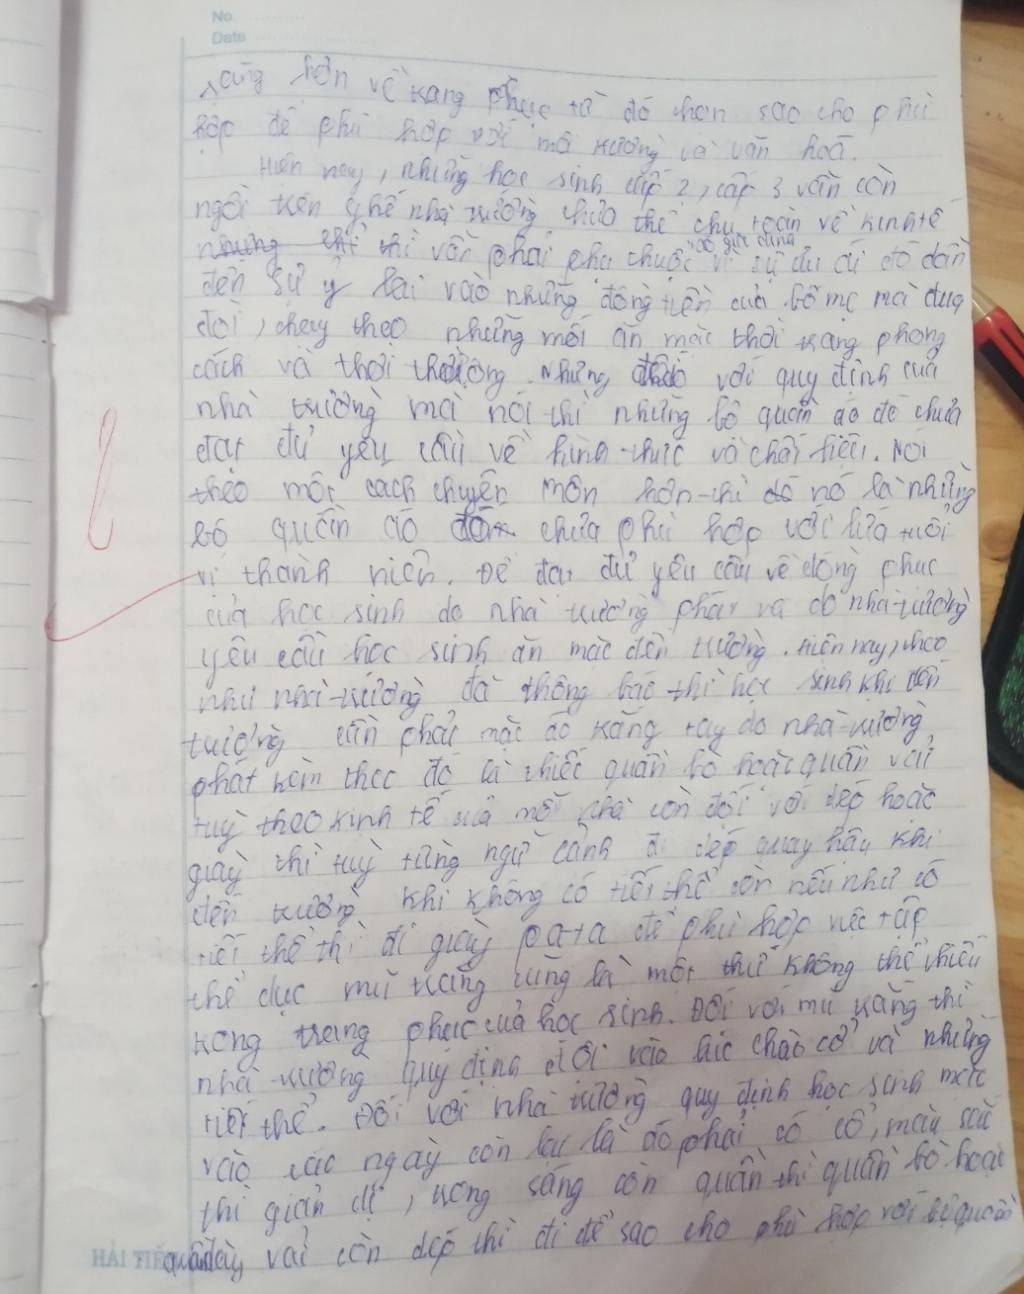 No.
Date
hơn về trang phục từ đó chọn sao cho phù
hợp để phù hợp với môi trường và văn hoá.
Hiện nay, những học sinh cấp 2, cấp 3 vẫn còn
ngồi trên ghế nhà trường chưa thể chu toàn về kinh tế
thì vẫn phải phụ thuộc vào gia đình vì sự đó dẫn
đến sự ỷ lại vào những đồng tiền của bố mẹ mà đua
đòi, chạy theo những mốt ăn mặc thời trang phong
cách và thời thượng. Nhưng đối với quy định của
nhà trường mà nói thì những bộ quần áo đó chưa
đạt đủ yêu cầu về hình thức và chất liệu. Nói
theo một cách chuyên môn hơn thì đó nó là những
bộ quần áo chưa phù hợp với lứa tuổi
vị thành niên. Để đạt đủ yêu cầu về đồng phục
của học sinh do nhà trường phát và do nhà trường
yêu cầu học sinh ăn mặc đến trường. Hiện nay, theo
như nhà trường đã thông báo thì học sinh khi đến
trường cần phải mặc áo trắng tay do nhà trường
phát kèm theo đó là chiếc quần bò hoặc quần vải
tuỳ theo kinh tế của mỗi nhà còn đối với dép hoặc
giày thì tuỳ từng ngữ cảnh đi dép quay hậu khi
đến trường khi không có tiết thể còn nếu như có
tiết thể thì đi giày pa-ta để phù hợp việc tập
thể dục mũ trắng cũng là một thứ không thể thiếu
trong trang phục của học sinh. Đối với mũ trắng thì
nhà trường quy định đội vào lúc chào cờ và những
tiết thể. Đối với nhà trường quy định học sinh mặc
vào các ngày còn lại là áo phải có cổ, màu sắc
thì giản dị, trong sáng còn quần thì quần bò hoặc
vải còn dép thì đi để sao cho phù hợp với bộ quần
HẢI TIẾN